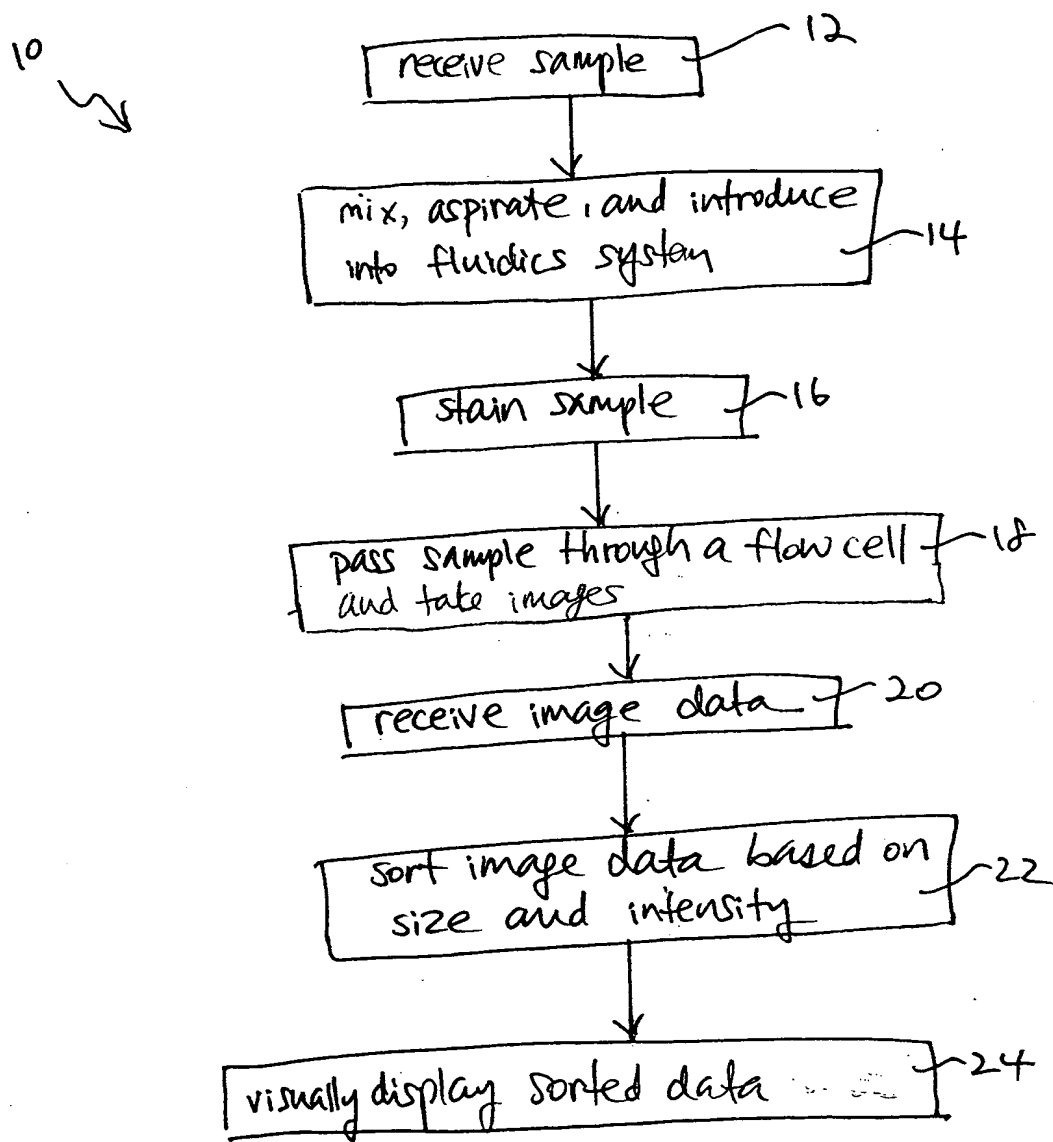 10
receive sample
12
mix, aspirate, and introduce
into fluidics system
14
stain sample
16
pass sample through a flow cell
and take images
18
receive image data
20
sort image data based on
size and intensity
22
visually display sorted data
24